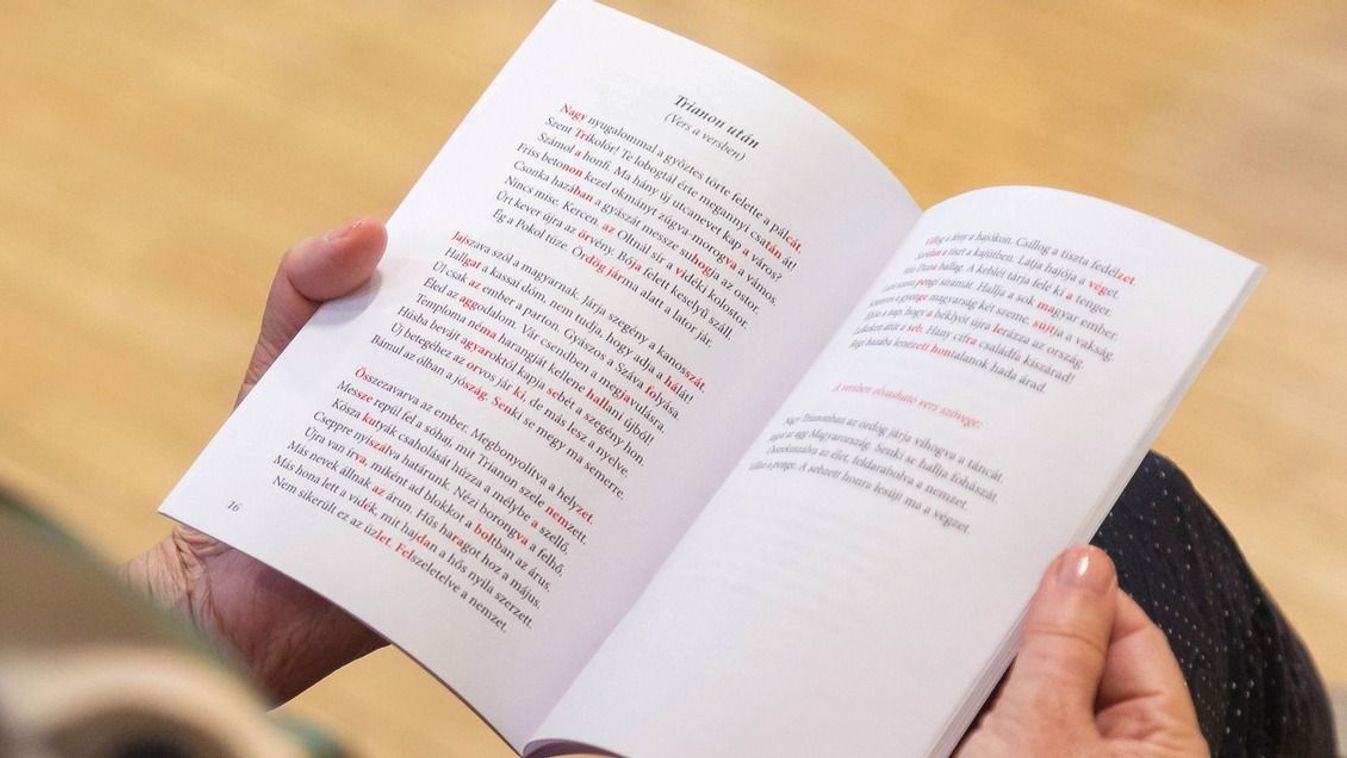 Trianon után
(Vers a versben)
Nagy nyugalommal a győztes törte felette a pálcát.
Szent Trikolór! Te lobogtál érte megannyi csatán át!
Számol a honfi. Ma hány új utcanevet kap a város?
Friss betonon kezel okmányt zúgva-morogva a vámos.
Csonka hazában a gyászát messze suhogja az ostor.
Nincs mise. Kercen, az Oltnál sír a vidéki kolostor.
Űrt kever újra az örvény. Bója felett keselyű száll.
Ég a Pokol tüze. Ördög járma alatt a lator jár.
Jajszava szól a magyarnak. Járja szegény a kanosszát.
Hallgat a kassai dóm, nem tudja, hogy adja a hálát!
Ül csak az ember a parton. Gyászos a Száva folyása.
Éled az aggodalom. Vár csendben a megjavulásra.
Temploma néma harangját kellene hallani újból!
Húsba bevájt agyaroktól kapja sebét a szegény hon.
Új betegéhez az orvos jár ki, de más lesz a nyelve.
Bámul az ólban a jószág. Senki se megy ma semerre.
Összezavarva az ember. Megbonyolítva a helyzet.
Messze repül fel a sóhaj, mit Trianon szele nemzett.
Kósza kutyák csaholását húzza a mélybe a szellő.
Cseppre nyiszálva határunk. Nézi borongva a felhő.
Újra van írva, miként ad blokkot a boltban az árus.
Más nevek állnak az árun. Hűs haragot hoz a május.
Más hona lett a vidék, mit hajdan a hős nyila szerzett.
Nem sikerült ez az üzlet. Felszeletelve a nemzet.
16
Villog a fény a hajókon. Csillog a tiszta fedélzet.
a tiszt a kajütben. Látja hajója a véget.
Duna hallag. A keblét tárja felé ki a tenger.
pengi siralmát. Hallja a sok magyar ember.
a gyenge magyarság két szeme, sújtja a vakság.
a nap, hogy a béklyót újra lerázza az ország.
Lelkeken átüt a seb. Hány cifra családfa kiszárad!
Régi hazába lenézett hontalanok hada árad.
A versben olvasható vers szövege:
Nagy Trianonban az ördög járja vihogva a táncát.
az agg Magyarország. Senki se hallja fohászát.
az élet, feldarabolva a nemzet.
a penge. A sebzett honra lesújt ma a végzet.